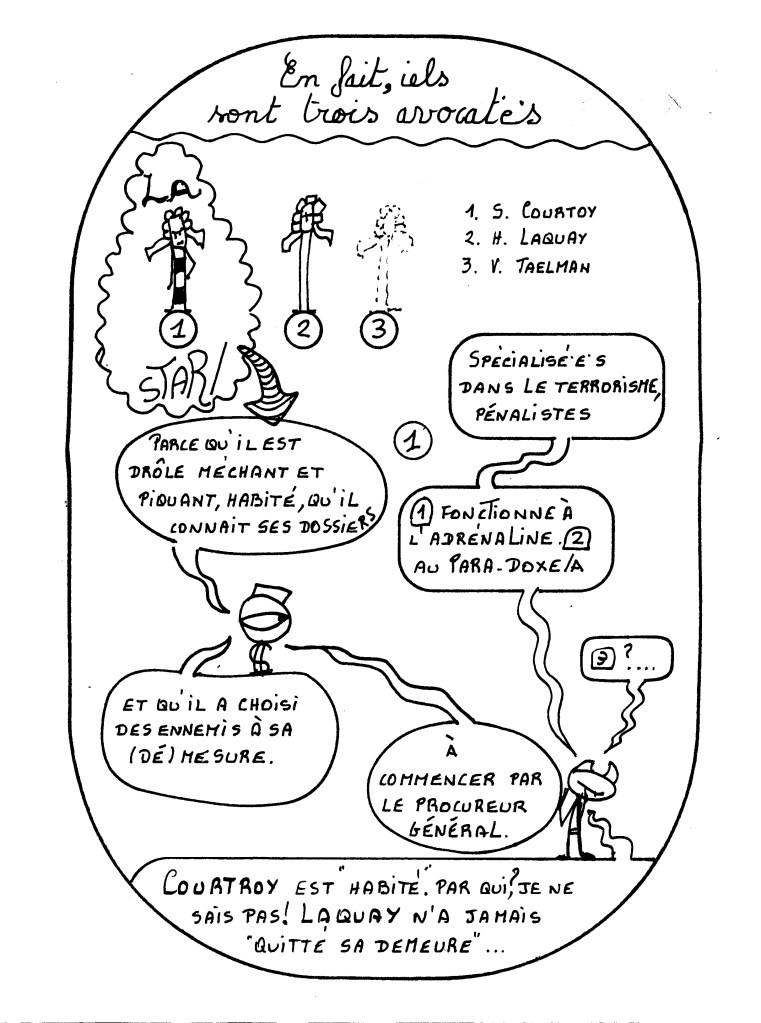 En fait, iels
sont trois avocat·e·s
LA
STAR!
1
2
3
1. S. COURTOY
2. H. LAQUAY
3. V. TAELMAN
SPÉCIALISÉ·E·S
DANS LE TERRORISME,
PÉNALISTES
1
PARCE QU'IL EST
DRÔLE MÉCHANT ET
PIQUANT, HABITÉ, QU'IL
CONNAIT SES DOSSIERS
1 FONCTIONNE À
L'ADRÉNALINE. 2
AU PARA-DOXE/A
3 ?....
ET QU'IL A CHOISI
DES ENNEMIS À SA
(DÉ)MESURE.
À
COMMENCER PAR
LE PROCUREUR
GÉNÉRAL.
COURTROY EST "HABITÉ". PAR QUI, JE NE
SAIS PAS! LAQUAY N'A JAMAIS
"QUITTÉ SA DEMEURE"...